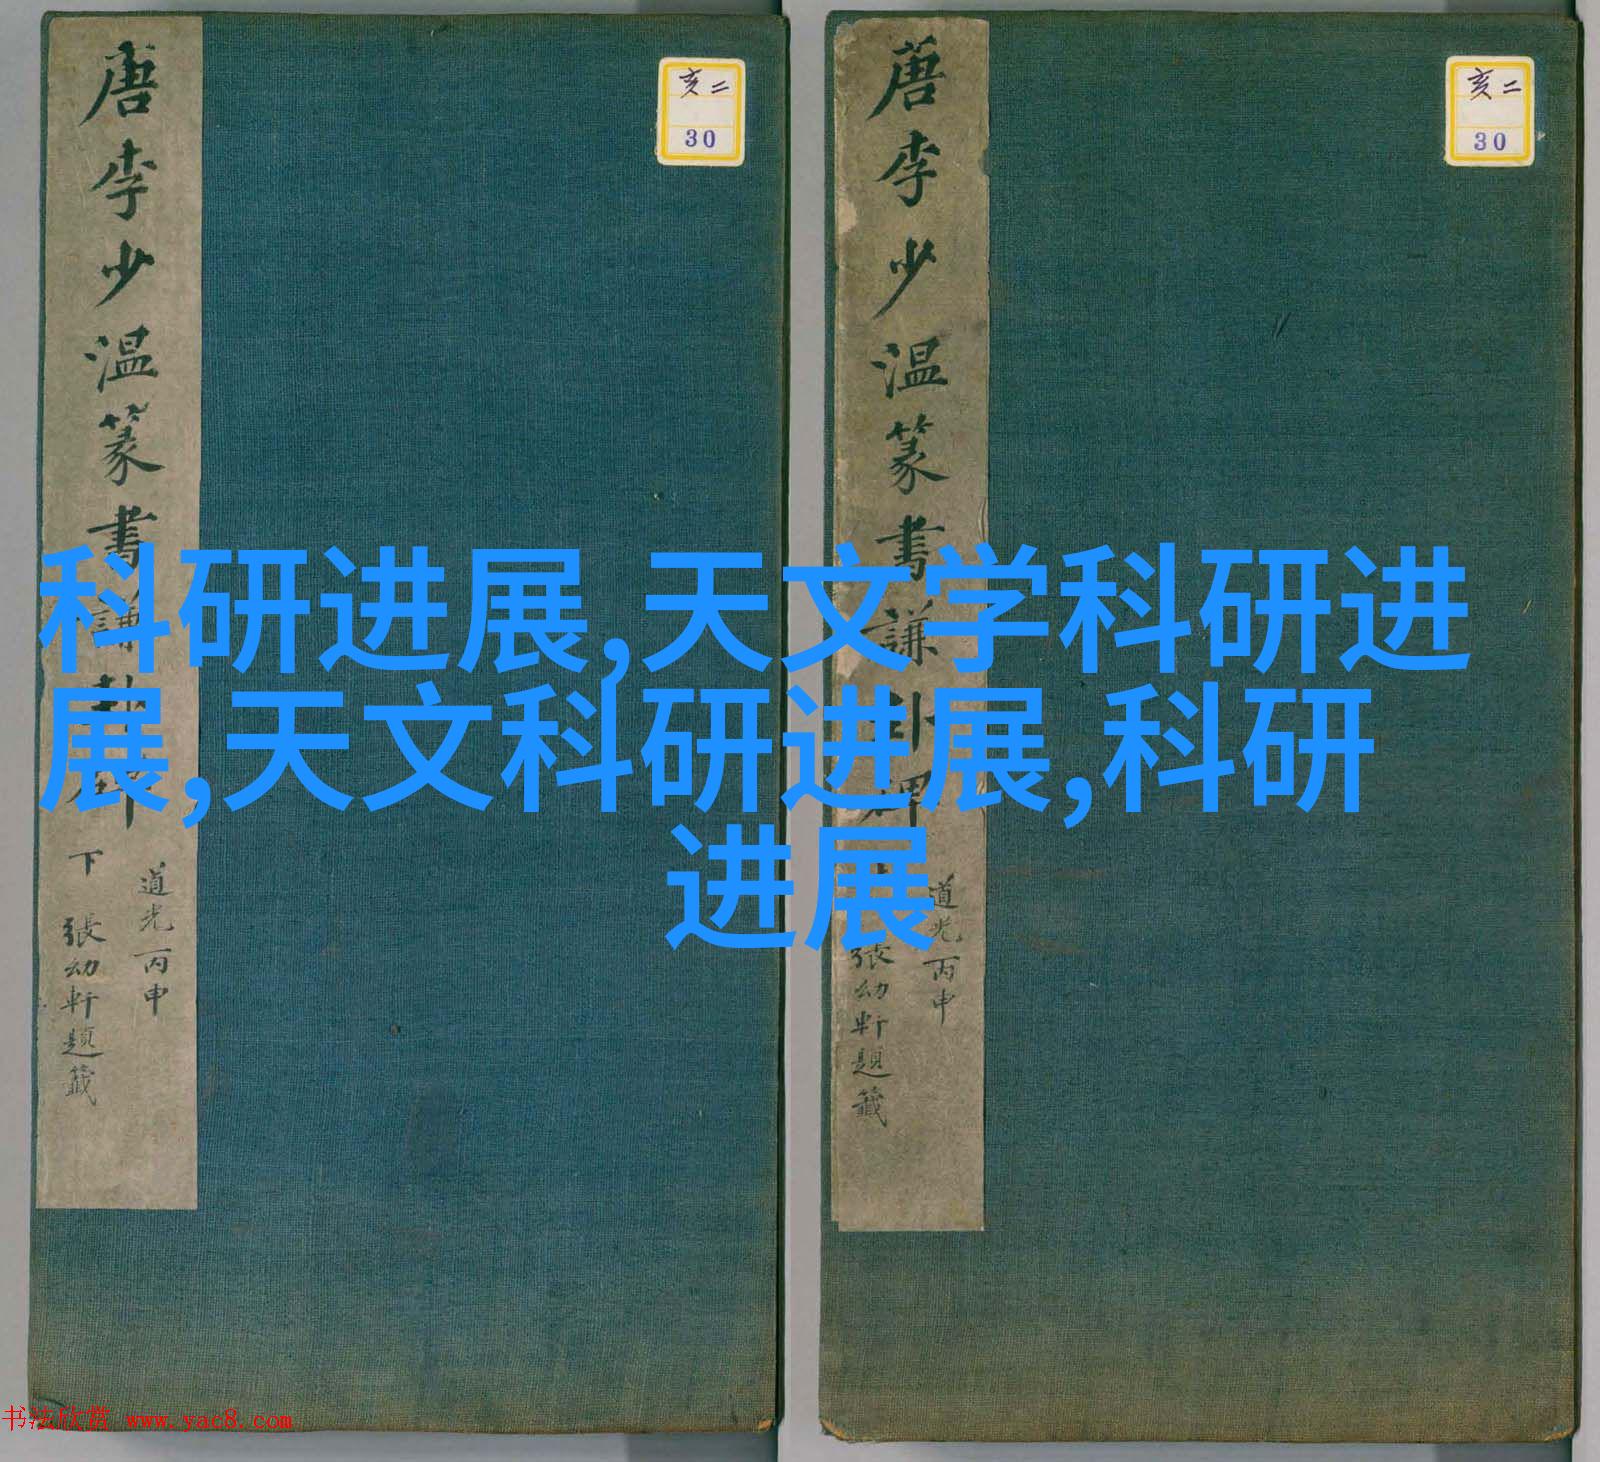 唐李少温篆書謙卦碑
下
道光丙申
張幼軒題籤
亥二
30
唐李少温篆書謙卦碑
道光丙申
張幼軒題籤
亥二
30
科研进展,天文学科研进
展,天文科研进展,科研
进展
书法欣赏 www.yac8.com